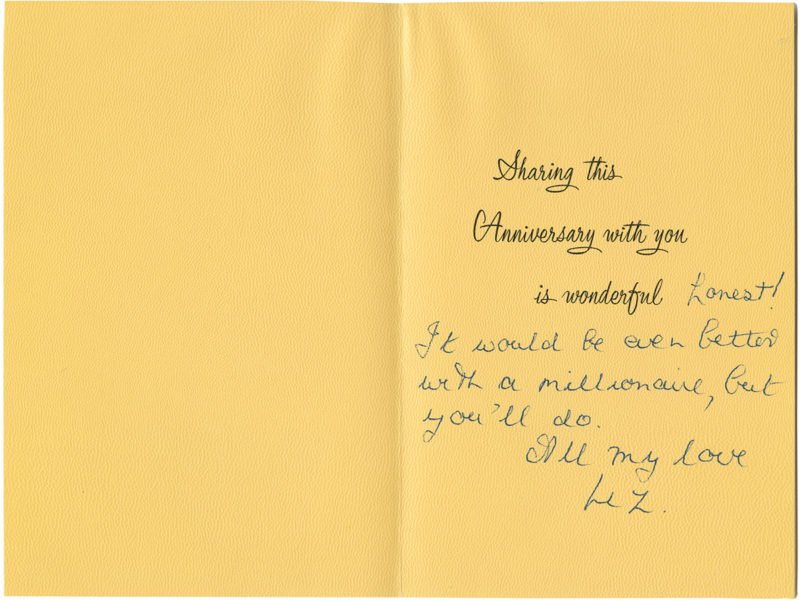 Sharing this
Anniversary with you
is wonderful honest!
It would be even better
with a millionaire, but
you'll do.
All my love
Liz.